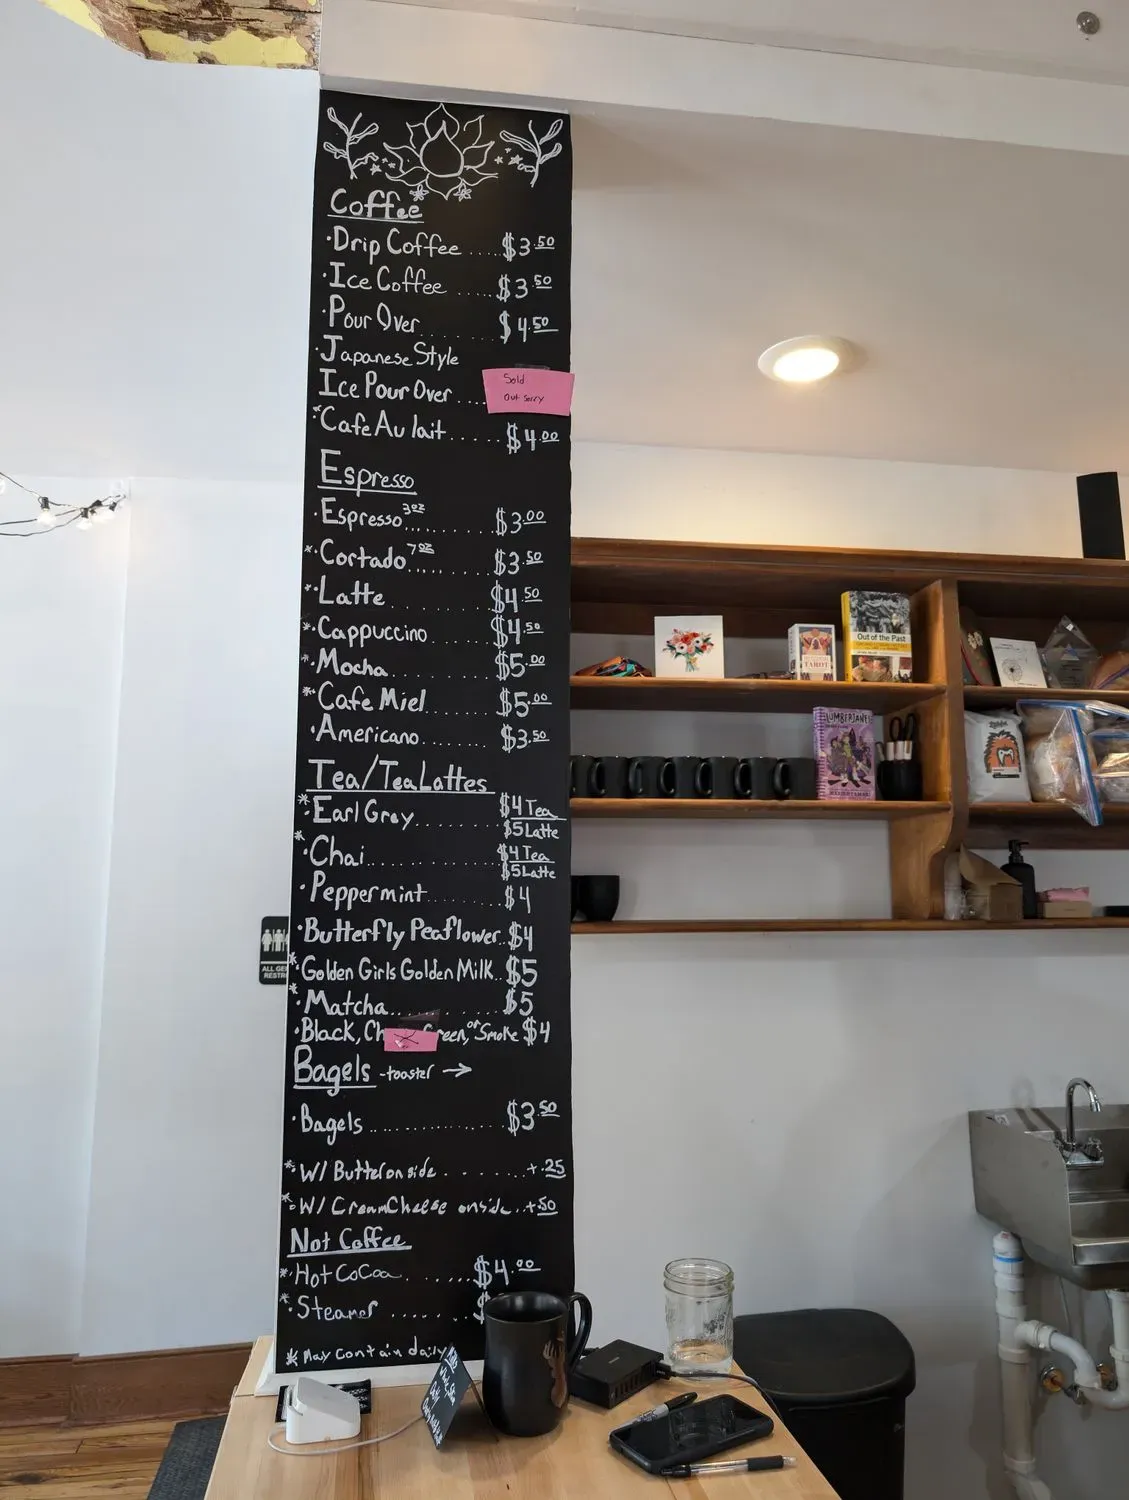 Coffee
·Drip Coffee .....$3.50
·Ice Coffee .....$3.50
·Pour Over........$4.50
·Japanese Style
Ice Pour Over ....
Sold
Out Sorry
*Cafe Au lait......$4.00
Espresso
·Espresso 3oz..........$3.00
*·Cortado 7oz.........$3.50
*·Latte........$4.50
*·Cappuccino......$4.50
*·Mocha.........$5.00
*·Cafe Miel......$5.00
·Americano.......$3.50
Tea/Tea Lattes
*·Earl Gray........$4 Tea
$5 Latte
*·Chai............$4 Tea
$5 Latte
·Peppermint.........$4
·Butterfly Peaflower..$4
*·Golden Girls Golden Milk..$5
*·Matcha..........$5
·Black, Green, or Smoke $4
Bagels -toaster →
·Bagels..............$3.50
*W/ Butter on side.......+.25
*·W/ CreamCheese onside..+.50
Not Coffee
*·Hot CoCoa.......$4.00
*·Steamer ......$
*May contain daily
ALL GE
RESTR
Out of the Past
TAROT
LUMBERJANES